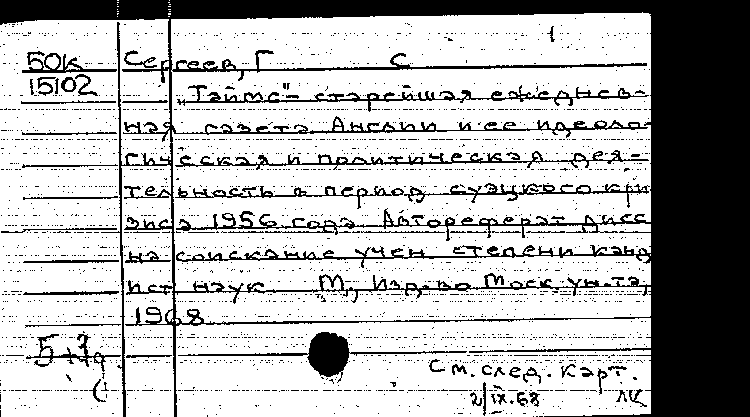 1
50К Сергеев, Г С
15102
„Таймс"- старейшая ежеднев-
ная газета Англии и ее идеоло-
гическая и политическая дея-
тельность в период суэцкого кри
зиса 1956 года Автореферат дисс
на соискание учен степени канд
ист наук М., Изд-во Моск ун-та,
1968
См. след. карт.
2/IX.68 ЛК